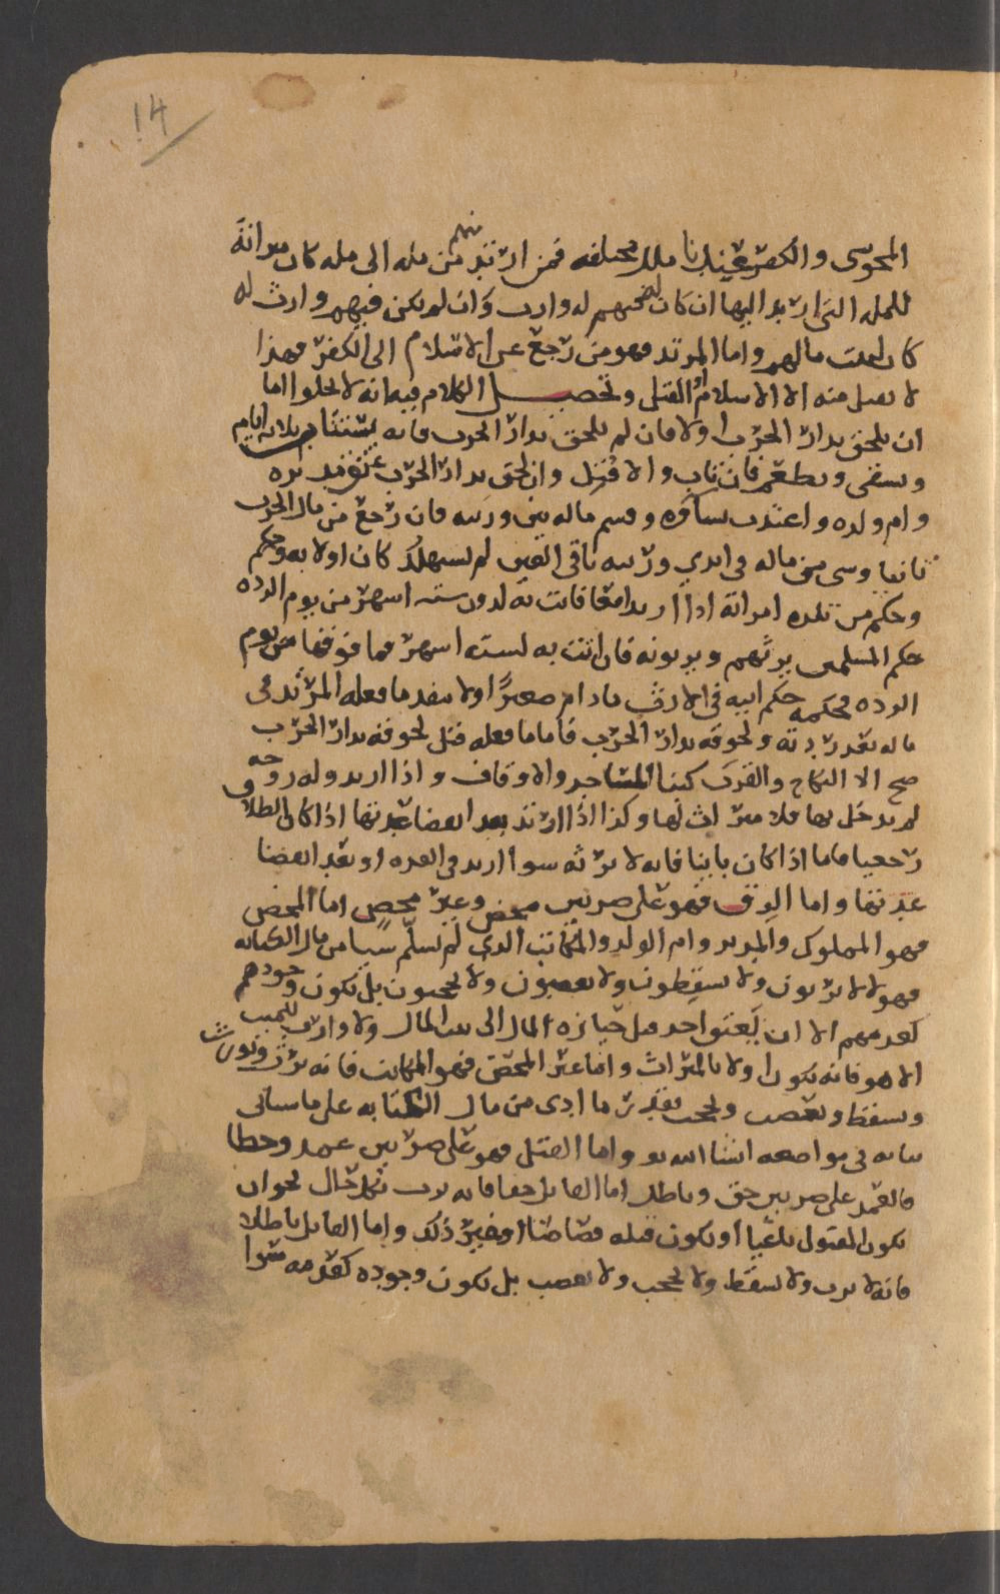 14
المجوسي والكفر عندنا ملل مختلفه فمن ارتد منهم من مله الى مله كان ميراثه
للمله التي ارتد اليها ان كان له فيهم وارث وان لم يكن فيهم وارث له
كان لبيت مالهم واما المرتد فهو من رجع عن الاسلام الى الكفر فهذا
لا يقبل منه الا الاسلام او القتل وتحصيل الكلام فيه انه لا يخلوا اما
ان يلحق بدار الحرب او لا فان لم يلحق بدار الحرب فانه يستتاب ثلاثه ايام
ويسقى ويطعم فان تاب والا قتل وان لحق بدار الحرب عتق مدبره
وام ولده واعتدت نساؤه وقسم ماله بين ورثته فان رجع من دار الحرب
تائبا وشي من ماله في ايدي ورثته باقي العين لم يستهلك كان اولا به وحكم
وحكم من تلده امراته اذا ارتدا معا فاتت به لدون سته اشهر من يوم الرده
حكم المسلمين يرثهم ويرثونه فان اتت به لسته اشهر فما فوقها من يوم
الرده فحكمه حكم ابيه في الارث مادام صغيرًا ولا ينفذ ما فعله المرتد في
ماله بعد ردته ولحوقه بدار الحرب فاما ما فعله قبل لحوقه بدار الحرب
صح الا النكاح والقرب كبنا المساجد والاوقاف واذا ارتد وله زوجه
لم يدخل بها فلا ميراث لها وكذا اذا ارتد بعد انقضا عدتها اذا كان الطلاق
رجعيا فاما اذا كان باينا فانه لا ترثه سوا ارتد في العده او بعد انقضا
عدتها واما الرق فهو على ضربين محض وغير محض اما المحض
فهو المملوك والمدبر وام الولد والمكاتب الذي لم يسلم شيا من مال الكتابه
فهولا لا يرثون ولا يسقطون ولا يعصبون ولا يحجبون بل يكون وجودهم
كعدمهم الا ان يعتق احد قبل حيازه المال الى بيت المال ولا وارث للميت
الا هو فانه يكون اولا بالميراث واما غير المحض فهو المكاتب فانه يرث ويورث
ويسقط ويعصب ويحجب بقدر ما ادى من مال الكتابه على ما سياتي
بيانه في مواضعه انشا الله واما القتل فهو على ضربين عمد وخطا
فالعمد على ضربين حق وباطل اما القاتل حقا فانه يرث بكل حال نحو ان
يكون المقتول باغيا او يكون قتله قصاصا او غير ذلك واما القاتل باطلا
فانه لا يرث ولا يسقط ولا يحجب ولا يعصب بل يكون وجوده كعدمه سوا